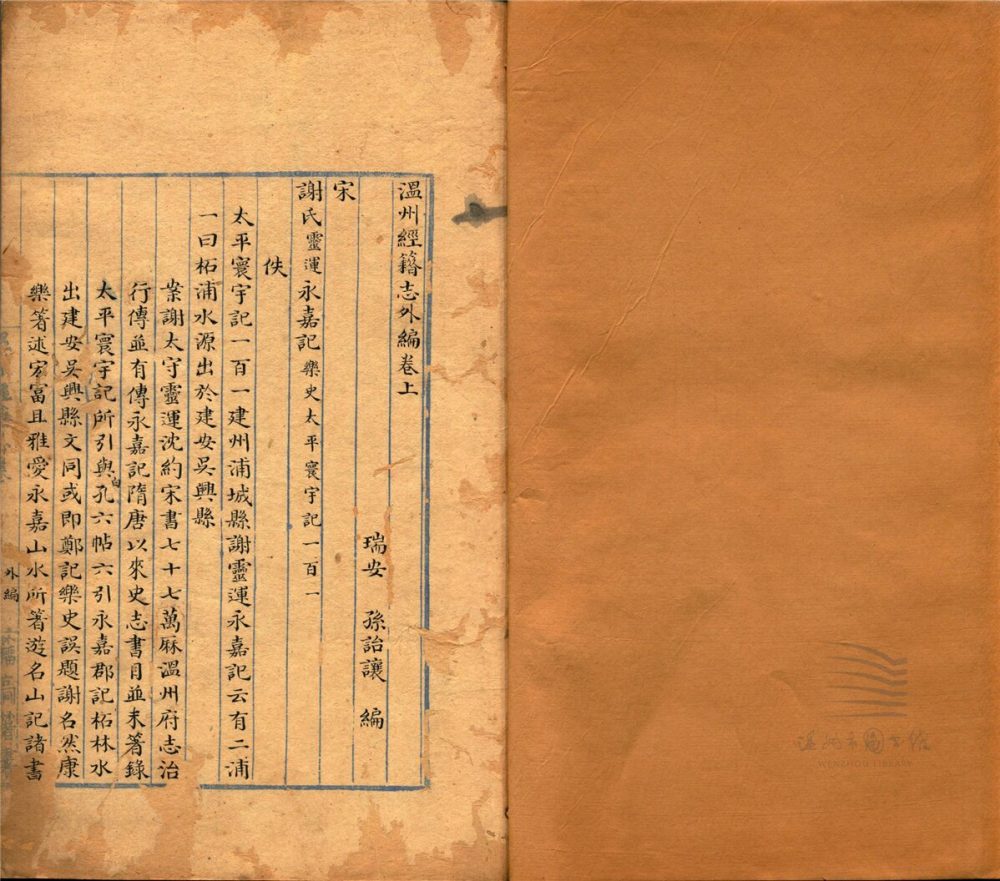 溫州經籍志外編卷上
瑞安 孫詒讓 編
宋
謝氏靈運永嘉記樂史太平寰宇記一百一
佚
太平寰宇記一百一建州浦城縣謝靈運永嘉記云有二浦
一曰柘浦水源出於建安吳興縣
案謝太守靈運沈約宋書七十七萬厤溫州府志治
行傳並有傳永嘉記隋唐以來史志書目並未著錄
太平寰宇記所引與孔六帖六引永嘉郡記柘林水
白
出建安吳興縣文同或即鄭記樂史誤題謝名然康
樂箸述宏富且雅愛永嘉山水所箸遊名山記諸書
外編
WENZHOU LIBRARY